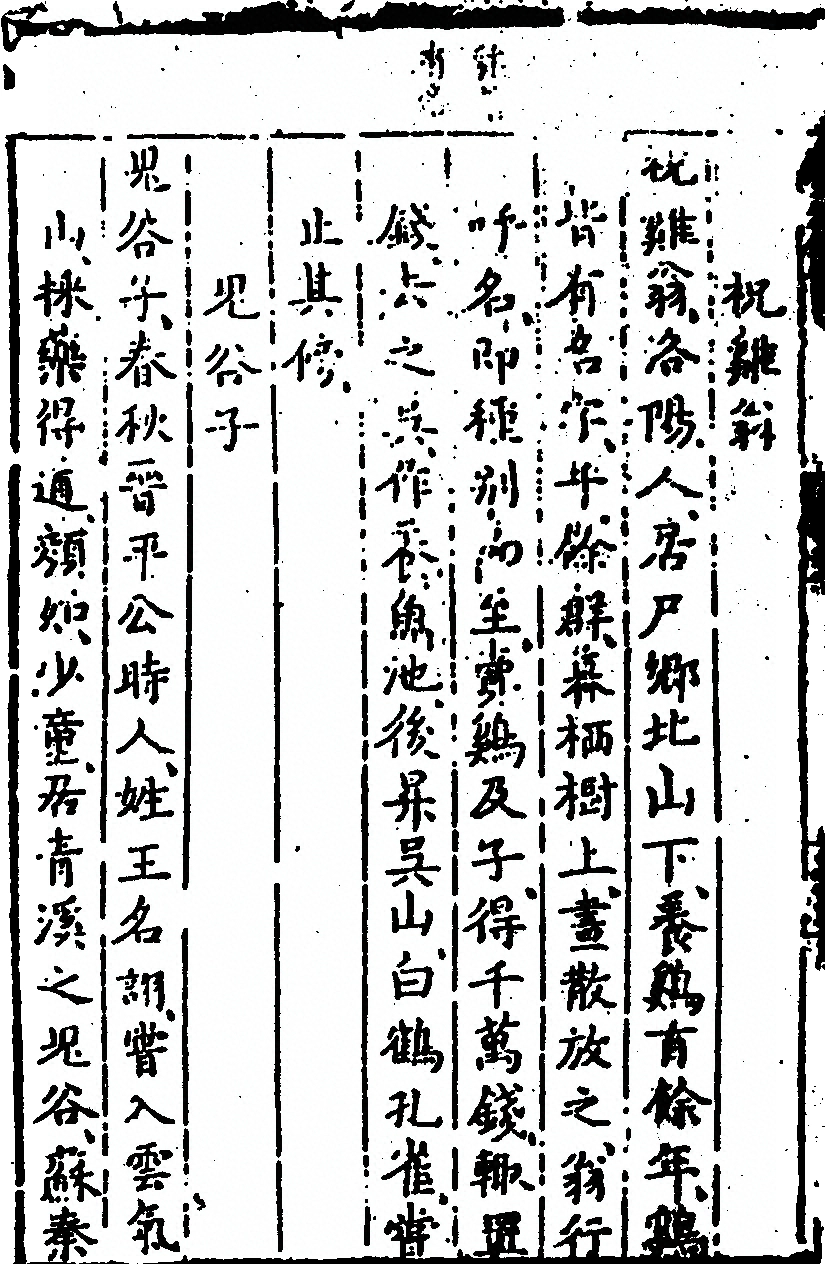 祝雞翁
祝雞翁洛陽人居尸鄉北山下養鷄百餘年鷄
皆有名字千餘群暮栖樹上晝散放之翁行
呼名即種別而至賣鷄及子得千萬錢輙置
錢去之吳作養魚池後昇吳山白鶴孔雀嘗
止其傍
鬼谷子
鬼谷子春秋晉平公時人姓王名詡嘗入雲氣
山採藥得道顏如少童居青溪之鬼谷蘇秦